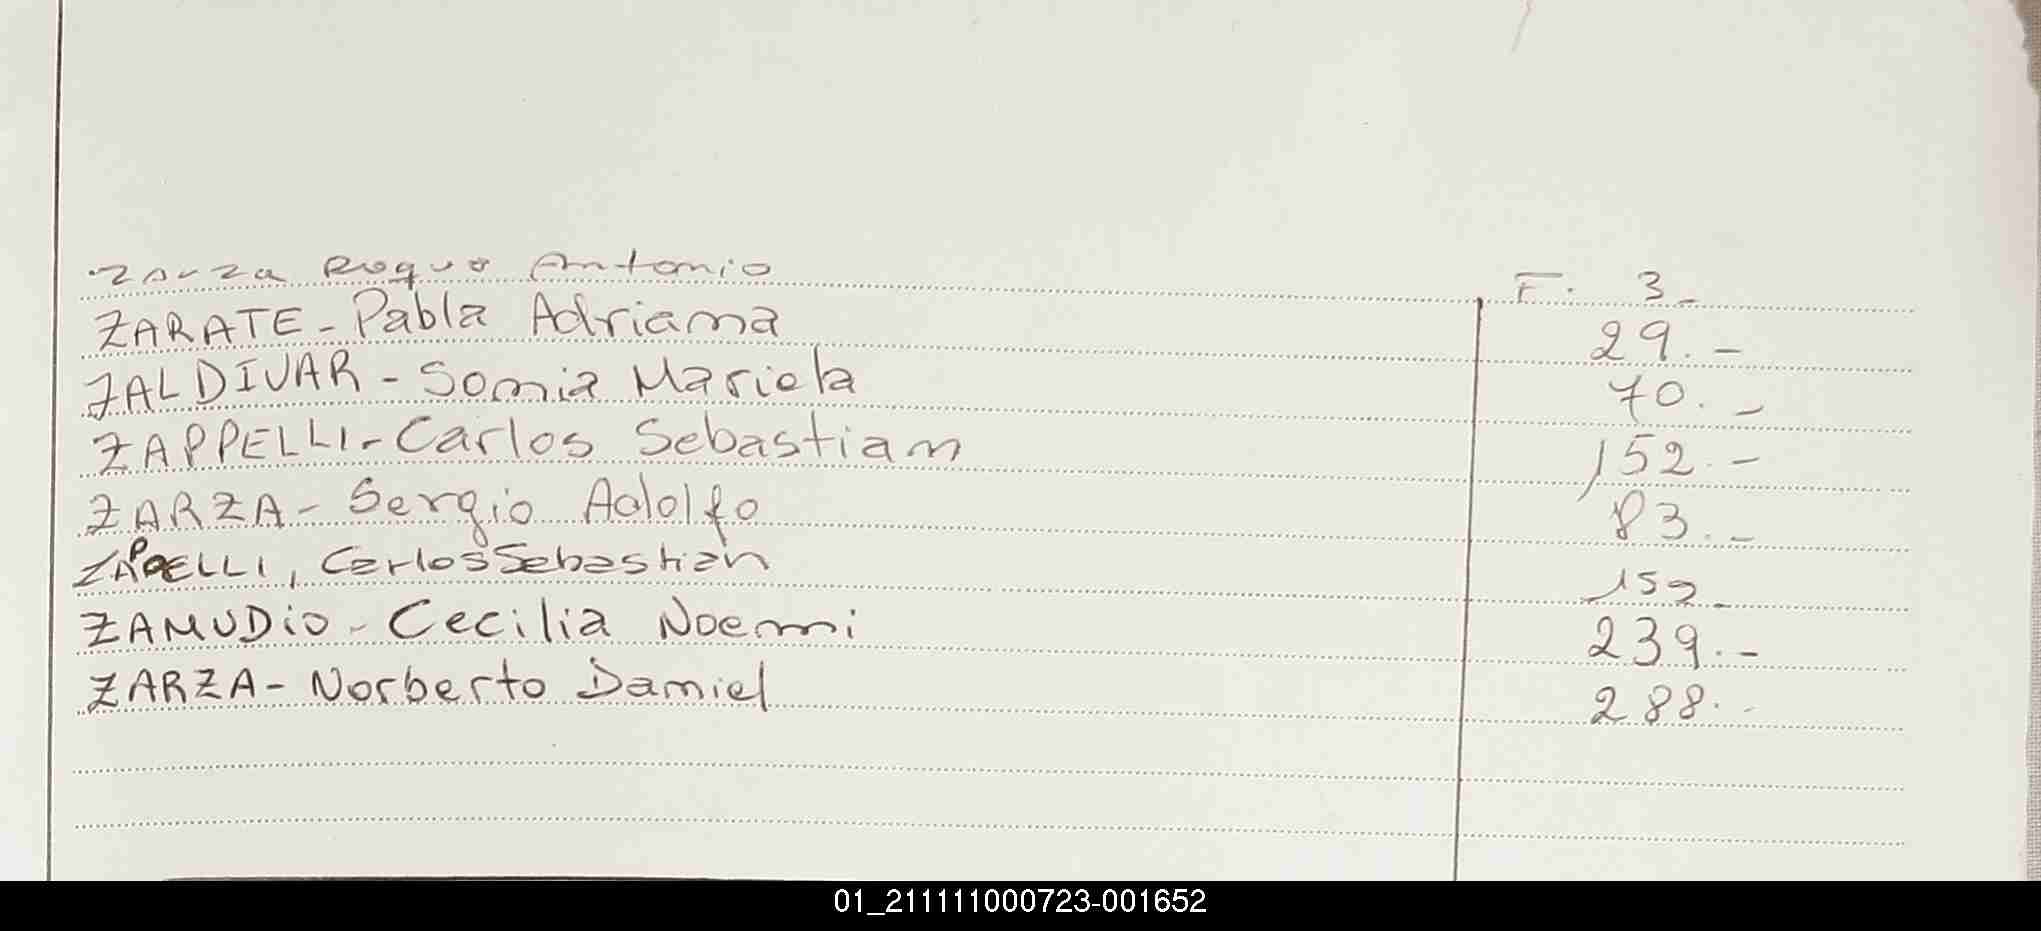 Zarza Roque Antonio F. 3_
ZARATE - Pabla Adriana 29. -
ZALDIVAR - Sonia Mariela 70. -
ZAPPELLI - Carlos Sebastian 152. -
ZARZA - Sergio Adolfo 83. -
ZAPPELLI, Carlos Sebastian 152_
ZAMUDIO - Cecilia Noemi 239. -
ZARZA - Norberto Daniel 288. -
01_211111000723-001652